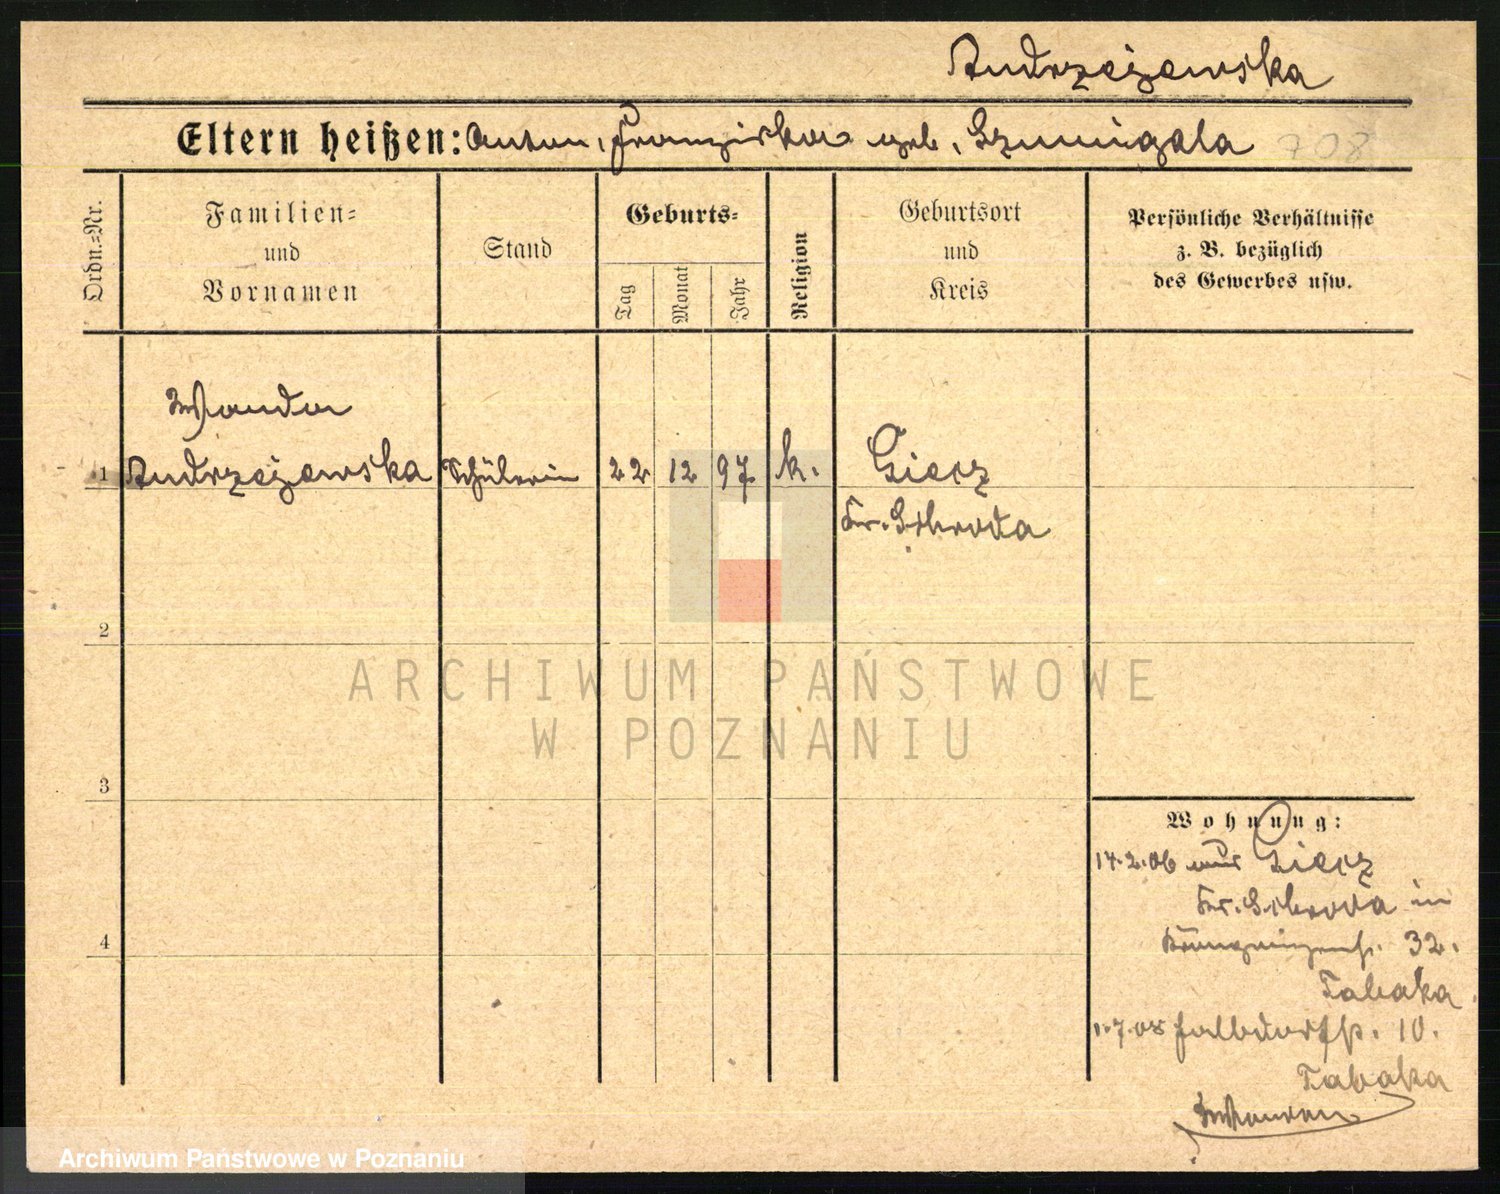 Andrzejewska
Eltern heißen: Anton, Franziska geb. Szmigala
708
Ordn.=Nr.
Familien=
und
Vornamen
Stand
Geburts=
Tag
Monat
Jahr
Religion
Geburtsort
und
Kreis
Persönliche Verhältnisse
z. B. bezüglich
des Gewerbes usw.
Wanda
1 Andrzejewska Schülerin 22 12 97 k. Giecz
Kr. Schroda
2
ARCHIWUM PAŃSTWOWE
W POZNANIU
3
4
Wohnung:
14.2.06 aus Giecz
Kr. Schroda in
32.
Tabaka
1.7.08 Halbdorfstr. 10.
Tabaka
Archiwum Państwowe w Poznaniu